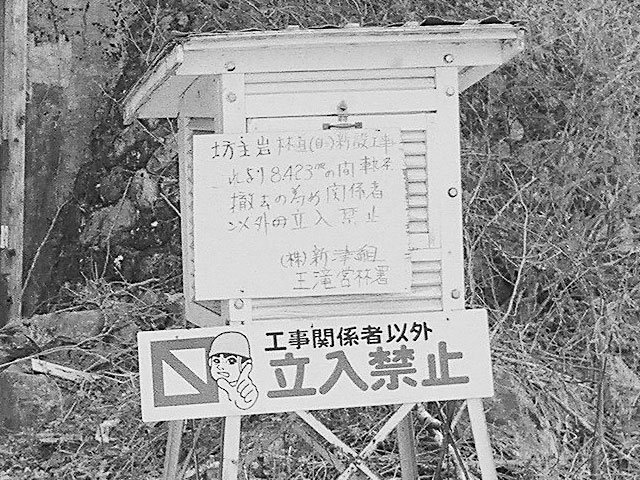 坊主岩林道(自)新設工事
此より8.423mの間軌条
撤去の為め関係者
以外の立入禁止
(株)新津組
王滝営林署
工事関係者以外
立入禁止